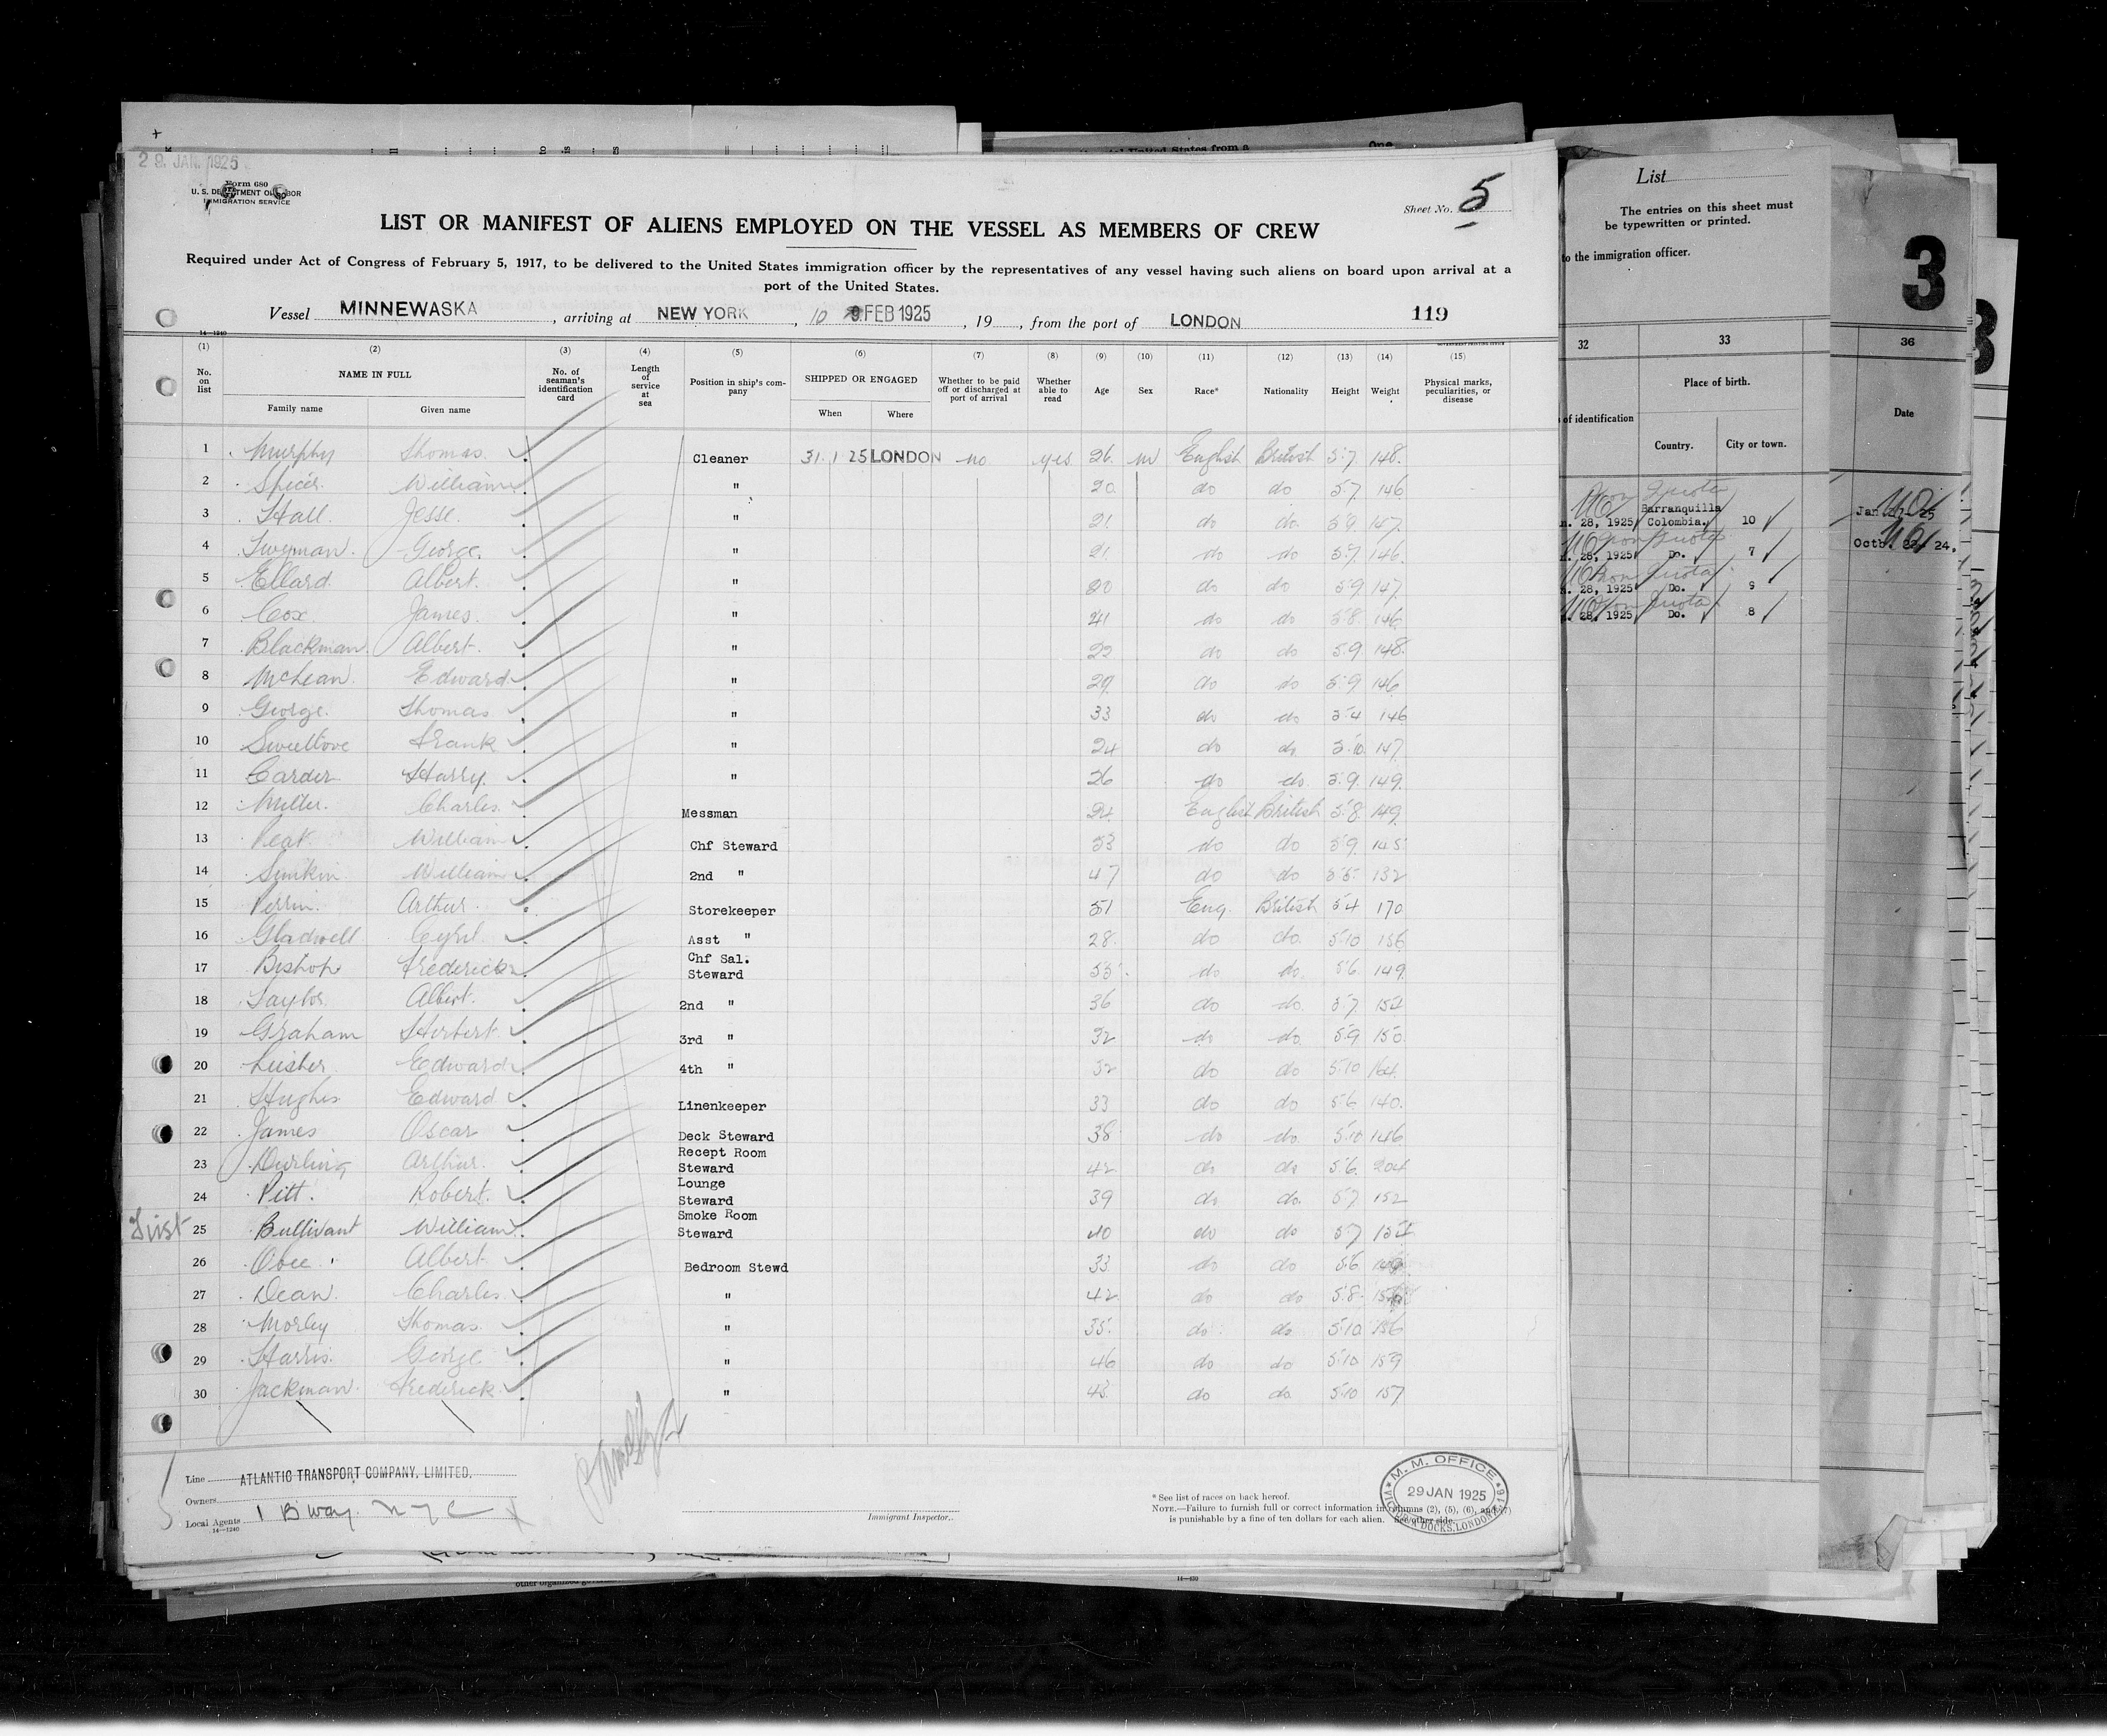 29 JAN. 1925
Form 680
U. S. DEPARTMENT OF LABOR
IMMIGRATION SERVICE
Sheet No. 5
LIST OR MANIFEST OF ALIENS EMPLOYED ON THE VESSEL AS MEMBERS OF CREW
Required under Act of Congress of February 5, 1917, to be delivered to the United States immigration officer by the representatives of any vessel having such aliens on board upon arrival at a
port of the United States.
Vessel MINNEWASKA, arriving at NEW YORK, 10 FEB 1925, 19, from the port of LONDON 119
14—1240
(1) (2) (3) (4) (5) (6) (7) (8) (9) (10) (11) (12) (13) (14) (15)
No. on list NAME IN FULL Family name Given name No. of seaman's identification card Length of service at sea Position in ship's company SHIPPED OR ENGAGED When Where Whether to be paid off or discharged at port of arrival Whether able to read Age Sex Race* Nationality Height Weight Physical marks, peculiarities, or disease
1 Murphy Thomas. Cleaner 31. 1 25 LONDON no yes 26. m English British 5.7 148.
2 Spicer William " 20 do do 5.7 146
3 Hall Jesse. " 21. do do. 5.9 147.
4 Twyman. George. " 21 do do 5.7 146.
5 Ellard Albert. " 20 do do 5.9 147.
6 Cox James. " 21 do do 5.8. 146.
7 Blackman Albert. " 22 do do 5.9. 148.
8 McLean. Edward. " 29 do do 5.9 146
9 George. Thomas " 33 do do 5.4 146
10 Sweetlove Frank " 24 do do 5.10. 147.
11 Carder Harry. " 26 do do. 5.9. 149.
12 Miller. Charles. Messman 24. English British 5.8. 149.
13 Peat William Chf Steward 53 do do 5.9. 145
14 Simkin William 2nd " 47 do do 5.5. 132
15 Perrin. Arthur. Storekeeper 51 Eng. British 5.4 170
16 Gladwell Cyril Asst " 28. do do. 5.10 156
17 Bishop Frederick Chf Sal. Steward 55. do do. 5.6. 149.
18 Taylor Albert. 2nd " 36 do do. 5.7.
19 Graham Herbert 3rd " 32 do do. 5.9 150.
20 Lusher Edward 4th " 32 do do 5.10 164.
21 Hughes Edward Linenkeeper 33 do do 5.6 140.
22 James Oscar Deck Steward 38 do do. 5.10 146.
23 Durling Arthur. Recept Room Steward 42 do do 5.6. 204
24 Pitt. Robert. Lounge Steward 39 do do. 5.7. 152
25 Bullivant William. Smoke Room Steward 40 do do 5.7
26 Obee Albert Bedroom Stewd 33 do do 5.6
27 Dean. Charles. " 42. do do 5.8.
28 Morley Thomas. " 35. do do. 5.10 156
29 Harris. George " 46 do do 5.10 159
30 Jackman. Frederick. " do do. 5.10 157
Line ATLANTIC TRANSPORT COMPANY, LIMITED.
Owners
Local Agents 1 B'way. N Y C
14—1240
Immigrant Inspector.
* See list of races on back hereof.
NOTE.—Failure to furnish full or correct information in columns (2), (5), (6), and (7)
is punishable by a fine of ten dollars for each alien. See other side.
M. M. OFFICE
29 JAN 1925
VICTORIA DOCKS, LONDON
List
The entries on this sheet must
be typewritten or printed.
to the immigration officer.
32 33 36
Place of birth.
of identification Country. City or town. Date
28, 1925 Barranquilla Colombia. 10
28, 1925 Do. 7 Octb. 24.
28, 1925 Do. 9
28, 1925 Do. 8
3
14—430